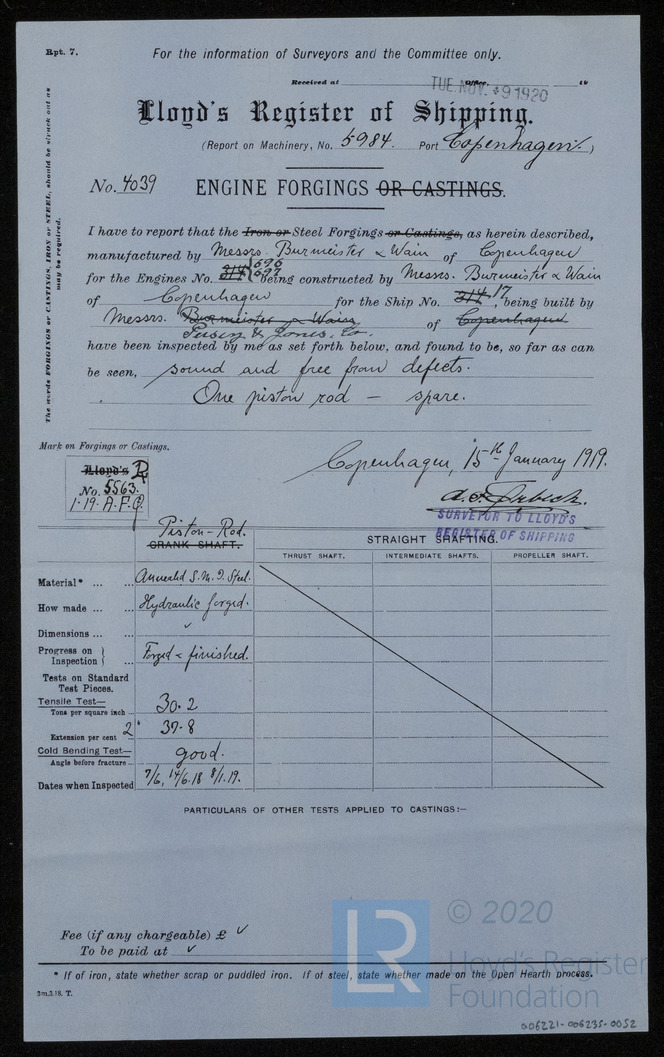 Rpt. 7.
For the information of Surveyors and the Committee only.
Received at Office, 19
TUE. NOV. 9 1920
Lloyd's Register of Shipping.
(Report on Machinery, No. 5984. Port Copenhagen.)
No. 4039
ENGINE FORGINGS OR CASTINGS.
I have to report that the Iron or Steel Forgings or Castings, as herein described,
manufactured by Messrs. Burmeister & Wain of Copenhagen
696
for the Engines No. 314 697 being constructed by Messrs. Burmeister & Wain
of Copenhagen for the Ship No. 314 17, being built by
Messrs. Burmeister & Wain of Copenhagen
Pusey & Jones, Co.
have been inspected by me as set forth below, and found to be, so far as can
be seen, sound and free from defects.
One piston rod — spare.
The words FORGINGS or CASTINGS, IRON or STEEL, should be struck out as
may be required.
Mark on Forgings or Castings.
Lloyd's
No. 5563.
1·19·A.F.
Copenhagen, 15th January 1919.
SURVEYOR TO LLOYD'S
REGISTER OF SHIPPING
Piston-Rod.
CRANK SHAFT.
STRAIGHT SHAFTING.
THRUST SHAFT. INTERMEDIATE SHAFTS. PROPELLER SHAFT.
Material* ... ... Annealed S.M.I. Steel.
How made ... ... Hydraulic forged.
Dimensions ... ... ✓
Progress on
Inspection } ... Forged & finished.
Tests on Standard
Test Pieces.
Tensile Test—
Tons per square inch .. 30.2
Extension per cent 2" 37.8
Cold Bending Test—
Angle before fracture .. good.
Dates when Inspected 7/6, 14/6.18 8/1.19.
PARTICULARS OF OTHER TESTS APPLIED TO CASTINGS:—
Fee (if any chargeable) £ ✓
To be paid at ✓
* If of iron, state whether scrap or puddled iron. If of steel, state whether made on the Open Hearth process.
3m.3.18. T.
LR
© 2020
Lloyd's Register
Foundation
006221-006235-0052